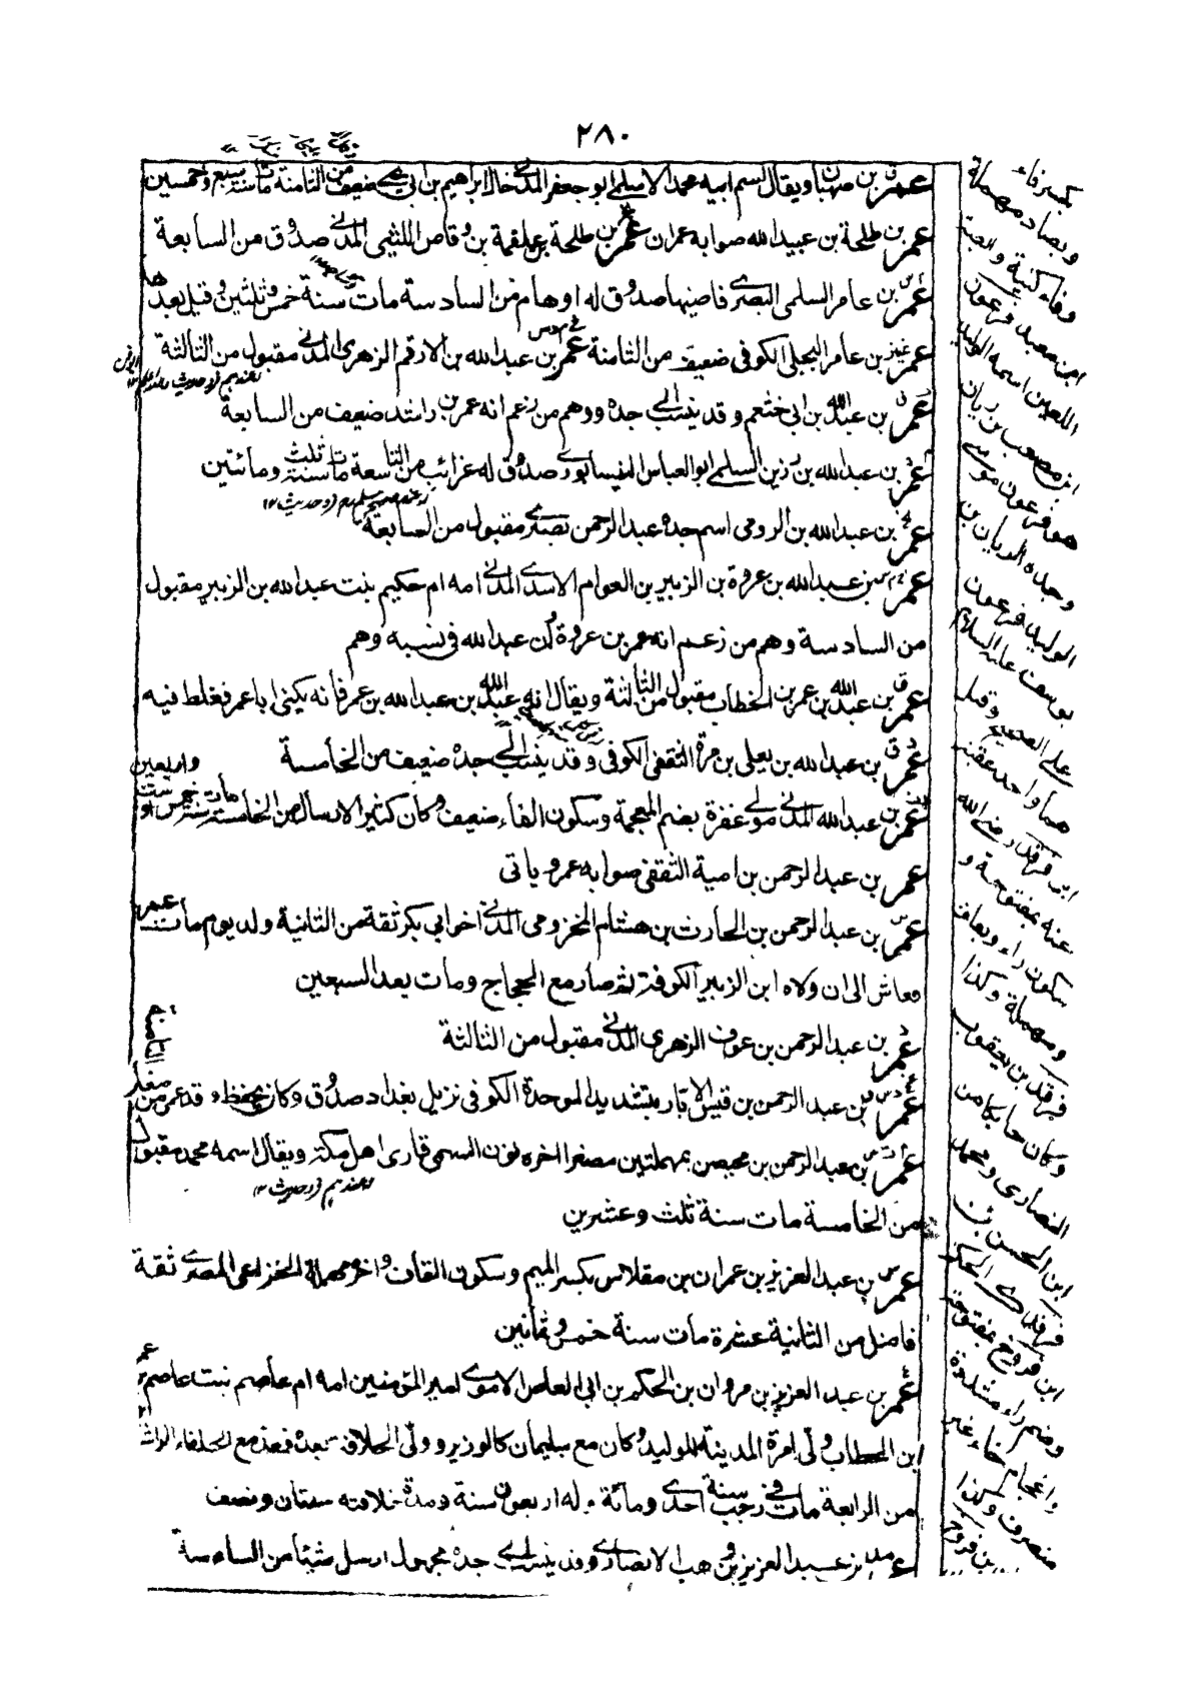 ٢٨٠
عمر بن صهبان ويقال اسم ابيه محمد الاسلمي ابو جعفر المدني خال ابراهيم بن ابي يحيى ضعيف من الثامنة مات سنة سبع وخمسين
عمر بن طلحة بن عبيد الله صوابه عمران عمر بن طلحة بن علقمة بن وقاص الليثي المدني صدوق من السابعة
عمر بن عامر السلمي البصري قاضيها صدوق له اوهام من السادسة مات سنة خمس وثلثين وقيل بعدها
عمر بن عامر البجلي الكوفي ضعيف من الثامنة عمر بن عبد الله بن الارقم الزهري المدني مقبول من الثالثة
عمر بن عبد الله بن ابي خثعم وقد ينسب الى جده ووهم من زعم انه عمر بن راشد ضعيف من السابعة
عمر بن عبد الله بن رزين السلمي ابو العباس النيسابوري صدوق له غرائب من التاسعة مات سنة ثلث ومائتين
عمر بن عبد الله بن الرومي اسم جده عبد الرحمن بصري مقبول من السابعة
عمر بن عبد الله بن عروة بن الزبير بن العوام الاسدي المدني امه ام حكيم بنت عبد الله بن الزبير مقبول
من السادسة وهم من زعم انه عمر بن عروة وان عبد الله في نسبه وهم
عمر بن عبد الله بن عمر بن الخطاب مقبول من الثالثة ويقال انه عبد الله بن عبد الله بن عمر فانه يكنى ابا عمر فغلط فيه
عمر بن عبد الله بن يعلى بن مرة الثقفي الكوفي وقد ينسب الى جده ضعيف من الخامسة
عمر بن عبد الله المدني مولى غفرة بضم المعجمة وسكون الفاء ضعيف وكان كثير الارسال من الخامسة مات سنة خمس او ست واربعين
عمر بن عبد الرحمن بن امية الثقفي صوابه عمرو ياتي
عمر بن عبد الرحمن بن الحارث بن هشام المخزومي المدني اخو ابي بكر ثقة من الثانية ولد يوم مات عمر
معاش الى ان ولاه ابن الزبير الكوفة ثم صار مع الحجاج ومات بعد السبعين
عمر بن عبد الرحمن بن عوف الزهري المدني مقبول من الثالثة
عمر بن عبد الرحمن بن قيس الابار بتشديد الموحدة الكوفي نزيل بغداد صدوق وكان يحفظ وقد عمي من صغار الثامنة
عمر بن عبد الرحمن بن محيصن بمهملتين مصغر اخره نون السهمي قارئ اهل مكة ويقال اسمه محمد مقبول
من الخامسة مات سنة ثلث وعشرين
عمر بن عبد العزيز بن عمران بن مقلاص بكسر الميم وسكون القاف واخره مهملة الخزاعي المصري ثقة
فاضل من الثانية عشرة مات سنة خمس وثمانين
عمر بن عبد العزيز بن مروان بن الحكم بن ابي العاص الاموي امير المؤمنين امه ام عاصم بنت عاصم بن عمر
ابن الخطاب ولي امرة المدينة للوليد وكان مع سليمان كالوزير وولي الخلافة بعده فعد مع الخلفاء الراشدين
من الرابعة مات في رجب سنة احدى ومائة وله اربعون سنة ومدة خلافته سنتان ونصف
عمر بن عبد العزيز بن وهب الانصاري وقد ينسب الى جده مجهول ارسل شيئا من السادسة
بكسر فاء
وبصاد مهملة
وفاء كنية والصة
ابن معبد فرعون
اللعين اسمه الوليد
ابن مصعب بن ريان
هو فرعون موسى
وجده الريان بن
الوليد فرعون
يوسف عليه السلام
على الصحيح وقيل
هما واحد عقبة
ابن فرقد رضي الله
عنه بمفتوحة و
سكون راء وبقاف
ومهملة وكذا
فرقد بن يعقوب
وكان حايكا من
النصارى ومحمد
ابن الحسن بن
فرقد
ابن فروخ بمفتوحة
وضم راء مشددة
واعجام خاء غير
منصرف وكذا
بن فروخ